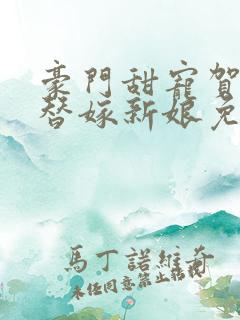 豪門甜寵賀
替嫁新娘免
馬丁諾維奇
未經同意禁止轉載